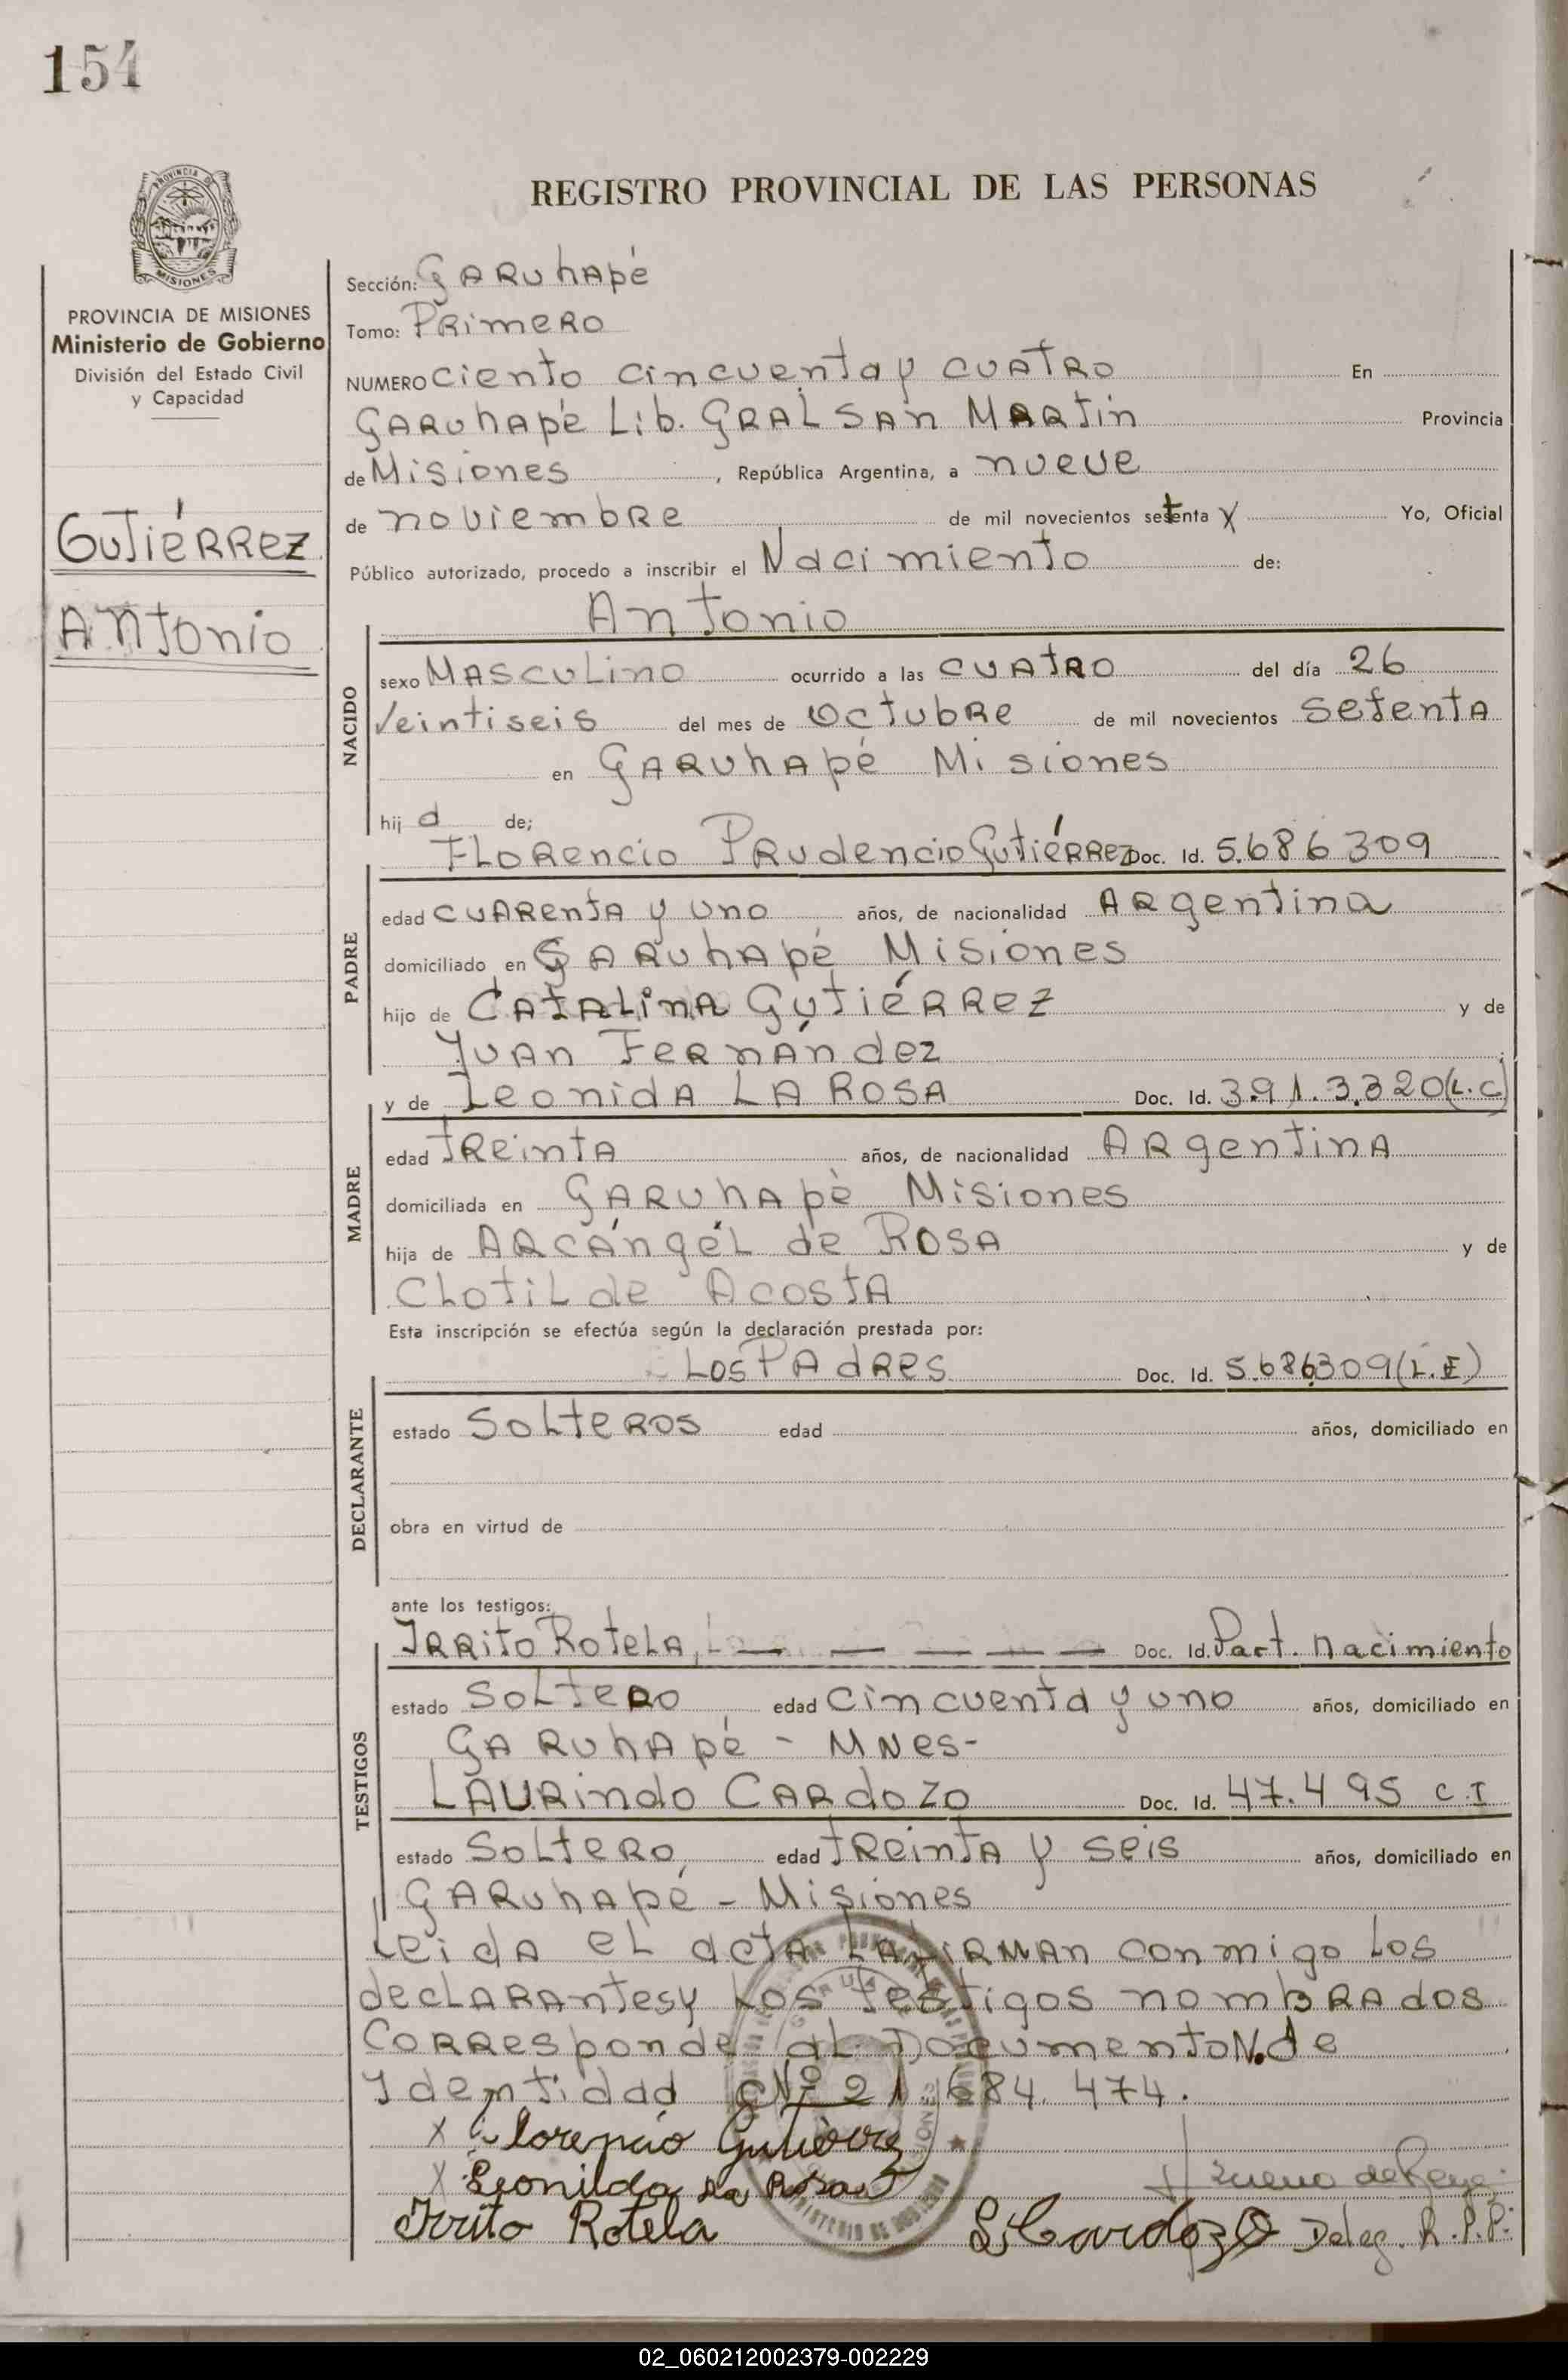 154
REGISTRO PROVINCIAL DE LAS PERSONAS
PROVINCIA DE MISIONES
Ministerio de Gobierno
División del Estado Civil
y Capacidad
Gutiérrez
Antonio
Sección: Garuhapé
Tomo: Primero
NUMERO ciento cincuenta y cuatro En
Garuhapé Lib. Gral San Martin Provincia
de Misiones, República Argentina, a nueve
de noviembre de mil novecientos setenta Yo, Oficial
Público autorizado, procedo a inscribir el Nacimiento de:
Antonio
NACIDO
sexo Masculino ocurrido a las cuatro del día 26
Veintiseis del mes de Octubre de mil novecientos setenta
en Garuhapé Misiones
hij o de;
Florencio Prudencio Gutiérrez Doc. Id. 5.686309
PADRE
edad cuarenta y uno años, de nacionalidad Argentina
domiciliado en Garuhapé Misiones
hijo de Catalina Gutiérrez y de
Juan Fernández
y de Leonida La Rosa Doc. Id. 391.3.320(L.C)
MADRE
edad treinta años, de nacionalidad Argentina
domiciliada en Garuhapé Misiones
hija de Arcángel de Rosa y de
Clotilde Acosta
Esta inscripción se efectúa según la declaración prestada por:
Los Padres Doc. Id. 5.686309(L.E)
DECLARANTE
estado Solteros edad años, domiciliado en
obra en virtud de
ante los testigos:
Irrito Rotela, Doc. Id. Part. nacimiento
TESTIGOS
estado soltero edad cincuenta y uno años, domiciliado en
Garuhapé - Mnes-
Laurindo Cardozo Doc. Id. 47.495 C.I
estado Soltero, edad treinta y seis años, domiciliado en
Garuhapé - Misiones
Leida el acta la firman conmigo los
declarantes y los testigos nombrados
Corresponde al Documento N. de
Identidad Nº 21.684.474.
x Florencio Gutierrez
x Leonilda La Rosa
Irrito Rotela
L. Cardozo
Deleg. R.P.P.
02_060212002379-002229